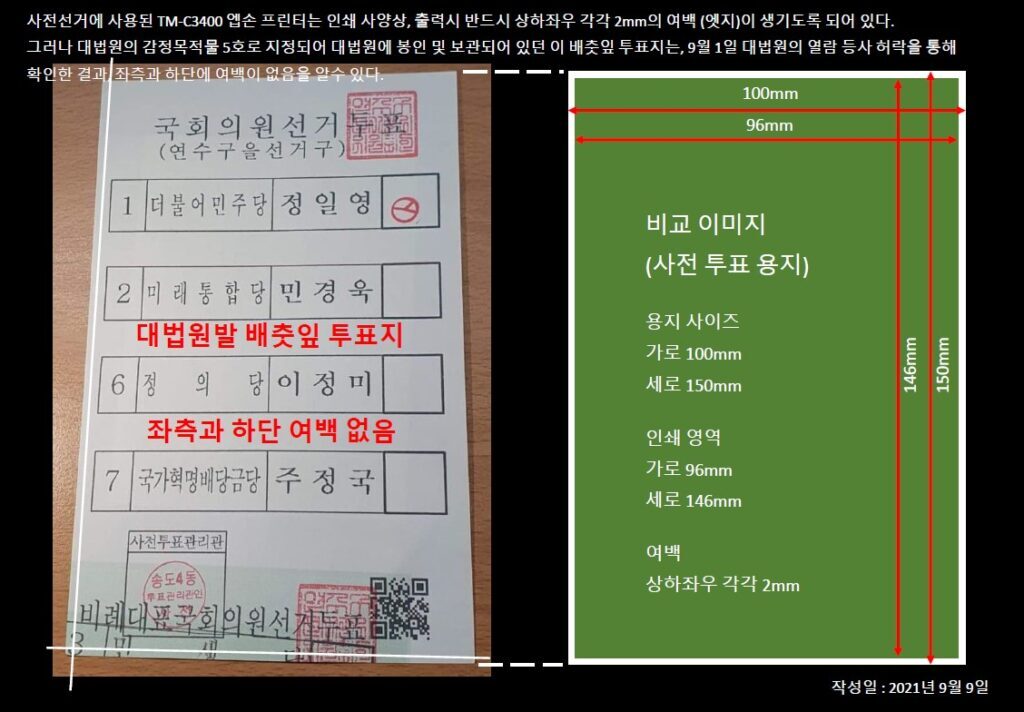 사전선거에 사용된 TM-C3400 엡손 프린터는 인쇄 사양상, 출력시 반드시 상하좌우 각각 2mm의 여백 (엣지)이 생기도록 되어 있다.
그러나 대법원의 감정목적물 5호로 지정되어 대법원에 봉인 및 보관되어 있던 이 배춧잎 투표지는, 9월 1일 대법원의 열람 등사 허락을 통해
확인한 결과, 좌측과 하단에 여백이 없음을 알수 있다.
국회의원선거투표
(연수구을선거구)
1 더불어민주당 정일영
2 미래통합당 민경욱
대법원발 배춧잎 투표지
6 정의당 이정미
좌측과 하단 여백 없음
7 국가혁명배당금당 주정국
사전투표관리관
송도4동
투표관리관인
비례대표국회의원선거투표
3 민
100mm
96mm
비교 이미지
(사전 투표 용지)
용지 사이즈
가로 100mm
세로 150mm
인쇄 영역
가로 96mm
세로 146mm
여백
상하좌우 각각 2mm
146mm
150mm
작성일 : 2021년 9월 9일